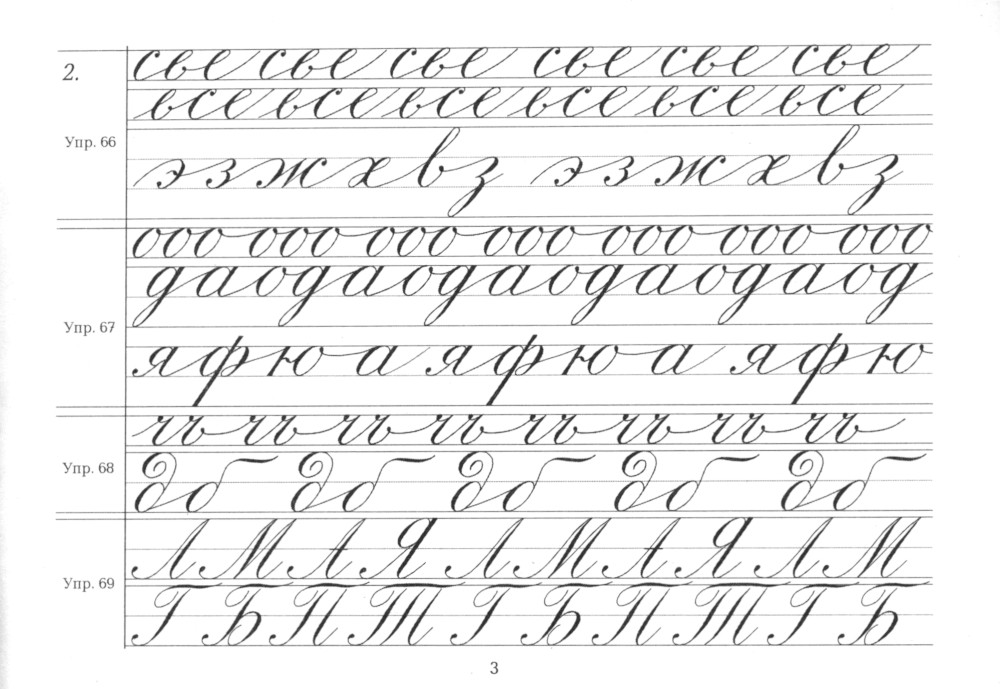 2.
све све све све све све
все все все все все все
Упр. 66
э з ж х в з э з ж х в з
ооо ооо ооо ооо ооо ооо ооо
даодаодаодаодаод
Упр. 67
я ф ю а я ф ю а я ф ю
чъ чъ чъ чъ чъ чъ чъ чъ
Упр. 68
д б д б д б д б д б
Л М А Я Л М А Я Л М
Упр. 69
Г Б П Т Г Б П Т Г Б
3